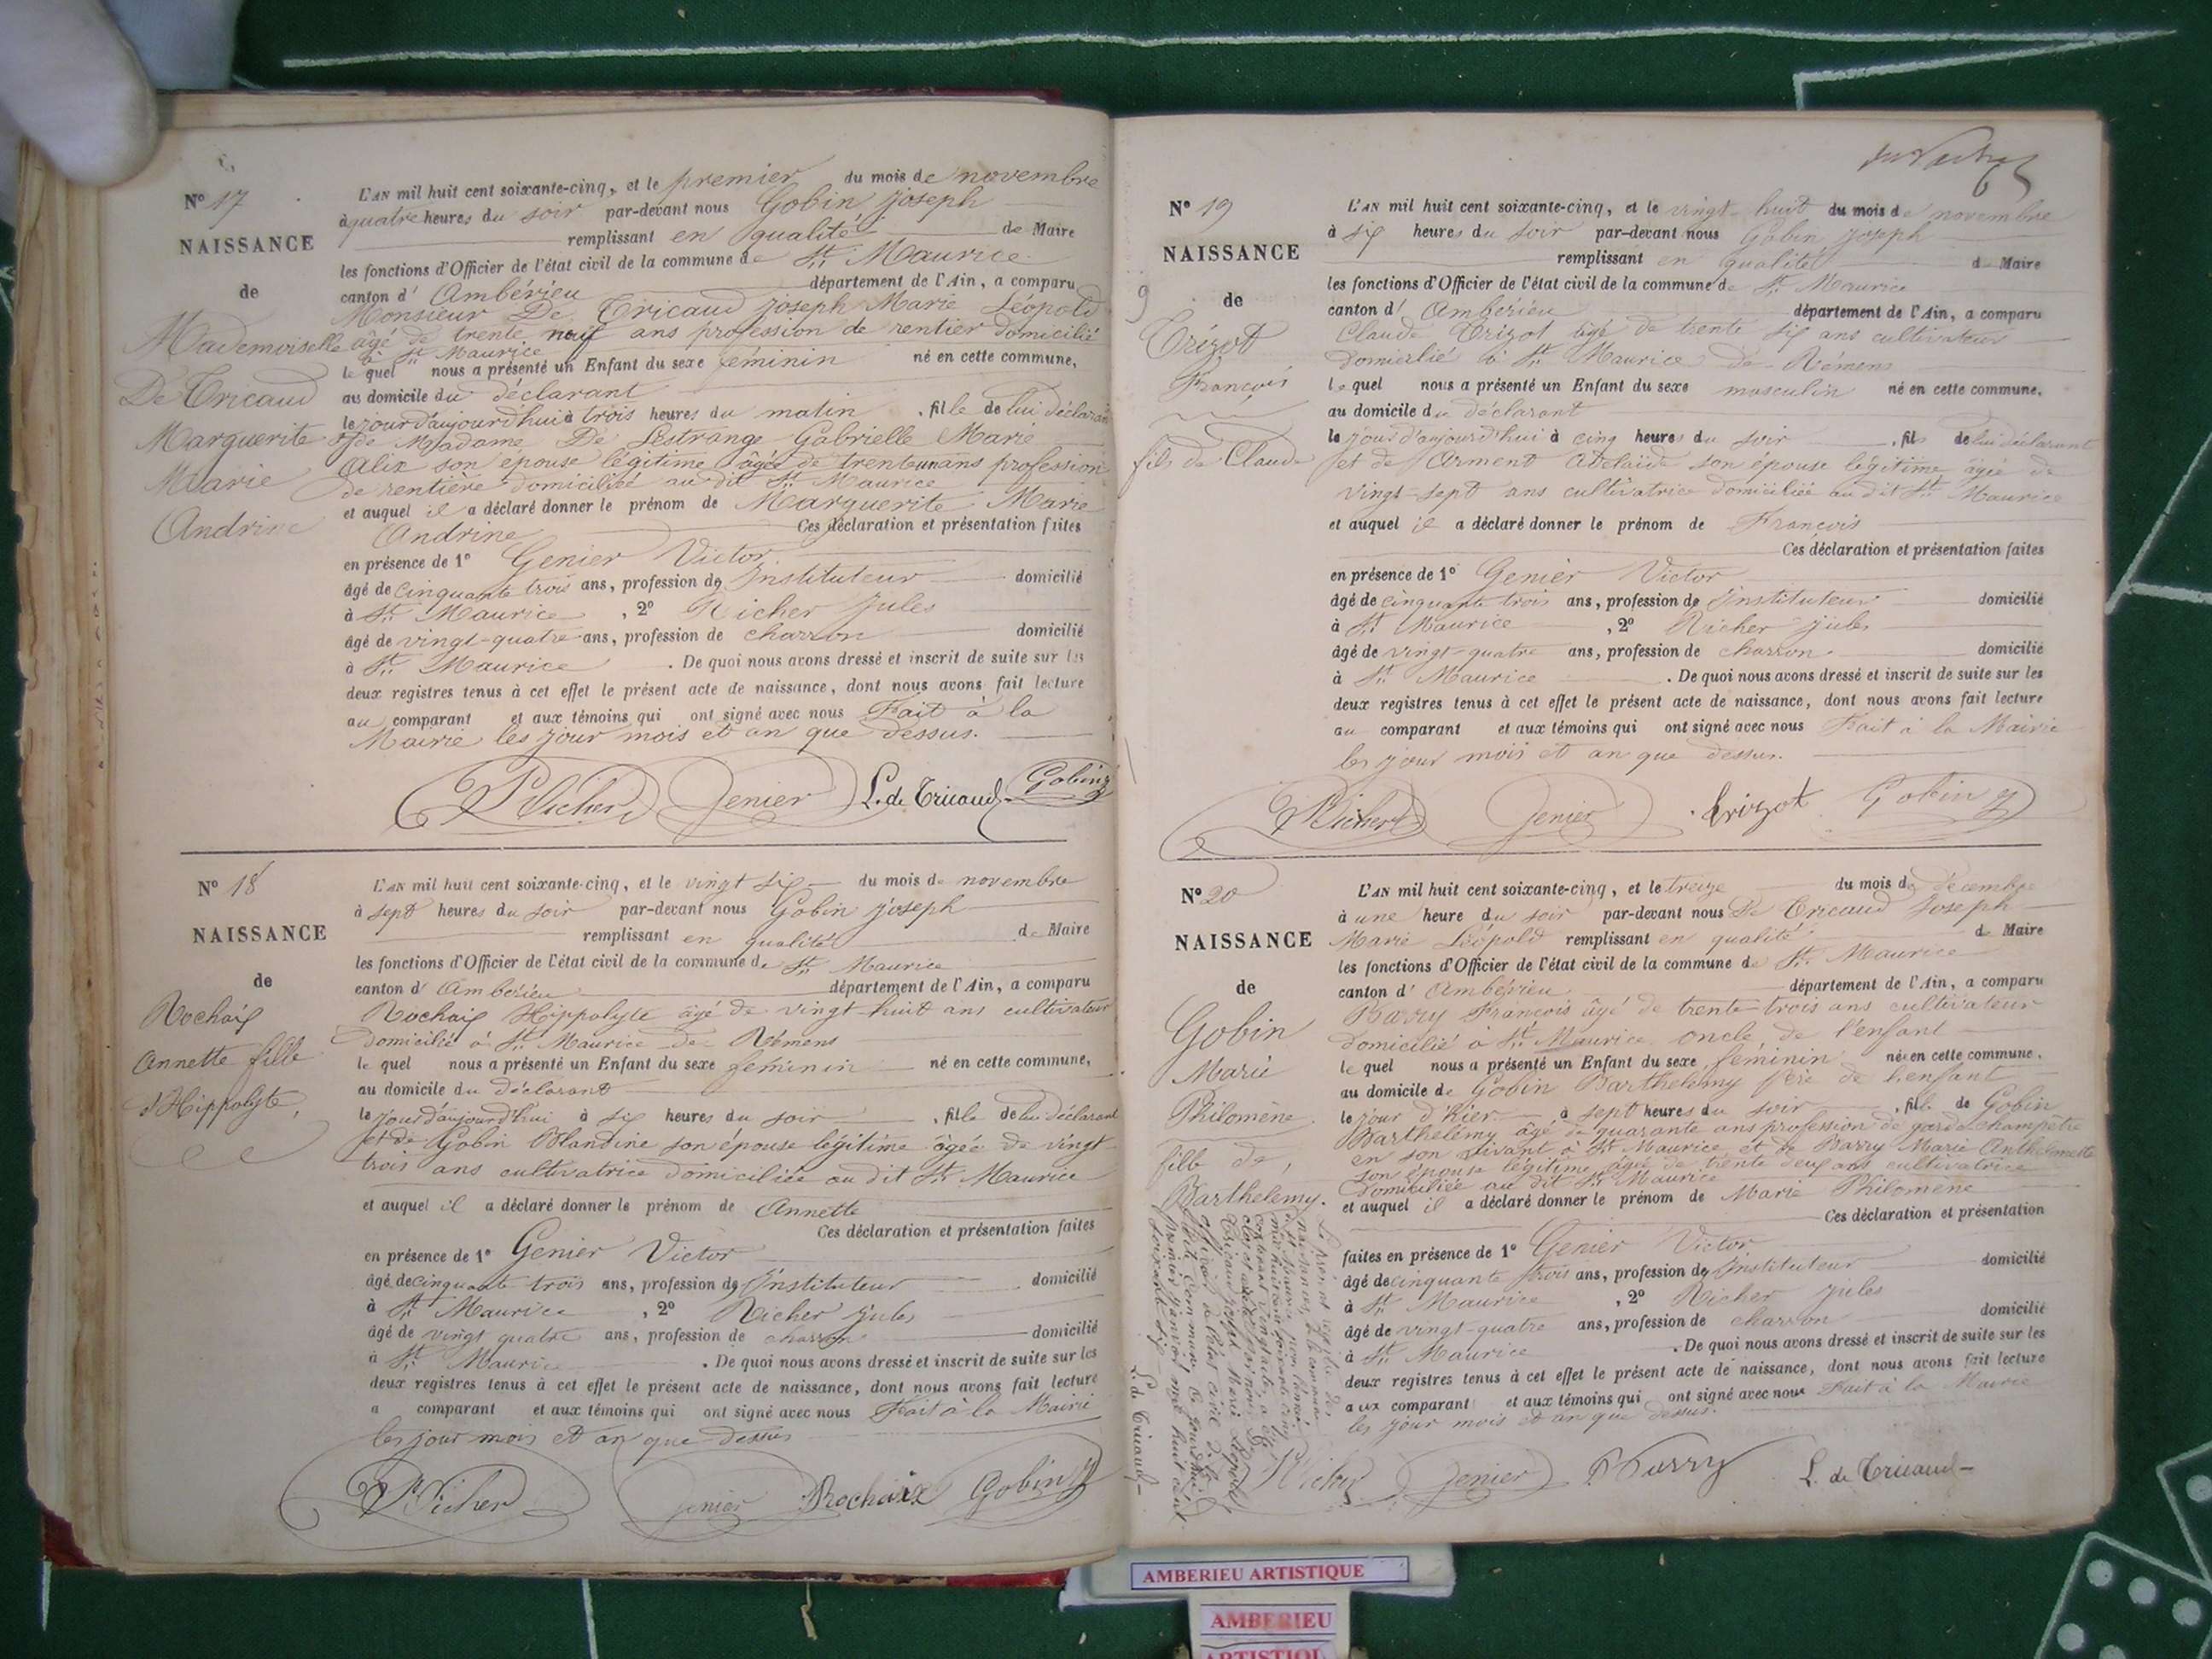 N° 17
NAISSANCE
de
Mademoiselle
De Tricaud
Marguerite
Marie
Andrine
L'AN mil huit cent soixante-cinq, et le premier du mois de novembre
à quatre heures du soir par-devant nous Gobin Joseph
remplissant en qualité de Maire
les fonctions d'Officier de l'état civil de la commune de St. Maurice
canton d'Ambérieu département de l'Ain, a comparu
Monsieur De Tricaud Joseph Marie Léopold
âgé de trente neuf ans profession de rentier domicilié
à St. Maurice
le quel nous a présenté un Enfant du sexe féminin né en cette commune,
au domicile du déclarant
le jour d'aujourd'hui à trois heures du matin, fille de lui déclarant
et de Madame De Lestrange Gabrielle Marie
Alix son épouse légitime âgée de trente un ans profession
de rentière domiciliée au dit St. Maurice
et auquel il a déclaré donner le prénom de Marguerite Marie
Andrine Ces déclaration et présentation faites
en présence de 1° Genier Victor
âgé de cinquante trois ans, profession de Instituteur domicilié
à St. Maurice, 2° Richer Jules
âgé de vingt-quatre ans, profession de charron domicilié
à St. Maurice. De quoi nous avons dressé et inscrit de suite sur les
deux registres tenus à cet effet le présent acte de naissance, dont nous avons fait lecture
au comparant et aux témoins qui ont signé avec nous Fait à la
Mairie les jour mois et an que dessus.
Richer Genier L. de Tricaud Gobin J
N° 18
NAISSANCE
de
Rochaix
Annette fille
d'Hippolyte,
L'AN mil huit cent soixante-cinq, et le vingt six du mois de novembre
à sept heures du soir par-devant nous Gobin Joseph
remplissant en qualité de Maire
les fonctions d'Officier de l'état civil de la commune de St. Maurice
canton d'Ambérieu département de l'Ain, a comparu
Rochaix Hippolyte âgé de vingt-huit ans cultivateur
domicilié à St. Maurice De Rémens
le quel nous a présenté un Enfant du sexe féminin né en cette commune,
au domicile du déclarant
le jour d'aujourd'hui à six heures du soir, fille de lui déclarant
et de Gobin Blandine son épouse légitime âgée de vingt
trois ans cultivatrice domiciliée au dit St. Maurice
et auquel il a déclaré donner le prénom de Annette
Ces déclaration et présentation faites
en présence de 1° Genier Victor
âgé de cinquante trois ans, profession de Instituteur domicilié
à St. Maurice, 2° Richer Jules
âgé de vingt quatre ans, profession de charron domicilié
à St. Maurice. De quoi nous avons dressé et inscrit de suite sur les
deux registres tenus à cet effet le présent acte de naissance, dont nous avons fait lecture
a comparant et aux témoins qui ont signé avec nous Fait à la Mairie
les jour mois et an que dessus
Richer Genier Rochaix Gobin J
N° 19
NAISSANCE
9
de
Trizot
François
fils de Claude
L'AN mil huit cent soixante-cinq, et le vingt-huit du mois de novembre
à six heures du soir par-devant nous Gobin Joseph
remplissant en qualité de Maire
les fonctions d'Officier de l'état civil de la commune de St. Maurice
canton d'Ambérieu département de l'Ain, a comparu
Claude Trizot âgé de trente six ans cultivateur
domicilié à St. Maurice De Rémens
le quel nous a présenté un Enfant du sexe masculin né en cette commune,
au domicile du déclarant
le jour d'aujourd'hui à cinq heures du soir, fils de lui déclarant
et de Arment Adelaïde son épouse légitime âgée de
vingt-sept ans cultivatrice domiciliée au dit St. Maurice
et auquel il a déclaré donner le prénom de François
Ces déclaration et présentation faites
en présence de 1° Genier Victor
âgé de cinquante trois ans, profession de Instituteur domicilié
à St. Maurice, 2° Richer Jules
âgé de vingt-quatre ans, profession de charron domicilié
à St. Maurice. De quoi nous avons dressé et inscrit de suite sur les
deux registres tenus à cet effet le présent acte de naissance, dont nous avons fait lecture
au comparant et aux témoins qui ont signé avec nous Fait à la Mairie
les jour mois et an que dessus.
Richer Genier Trizot Gobin J
N° 20
NAISSANCE
de
Gobin
Marie
Philomène
fille de
Barthelemy.
L'AN mil huit cent soixante-cinq, et le treize du mois de décembre
à une heure du soir par-devant nous De Tricaud Joseph
Marie Léopold remplissant en qualité de Maire
les fonctions d'Officier de l'état civil de la commune de St. Maurice
canton d'Ambérieu département de l'Ain, a comparu
Barry François âgé de trente-trois ans cultivateur
domicilié à St. Maurice oncle de l'enfant
le quel nous a présenté un Enfant du sexe féminin né en cette commune,
au domicile de Gobin Barthelemy père de l'enfant
le jour d'hier à sept heures du soir, fille de Gobin
Barthelémy âgé de quarante ans profession de garde champêtre
en son vivant à St. Maurice et de Barry Marie Anthelmette
son épouse légitime âgée de trente deux ans cultivatrice
domiciliée au dit St. Maurice
et auquel il a déclaré donner le prénom de Marie Philomène
Ces déclaration et présentation
faites en présence de 1° Genier Victor
âgé de cinquante trois ans, profession de Instituteur domicilié
à St. Maurice, 2° Richer Jules
âgé de vingt-quatre ans, profession de charron domicilié
à St. Maurice. De quoi nous avons dressé et inscrit de suite sur les
deux registres tenus à cet effet le présent acte de naissance, dont nous avons fait lecture
aux comparant et aux témoins qui ont signé avec nous Fait à la Mairie
les jour mois et an que dessus.
Richer Genier Barry L. de Tricaud
Le présent registre des
naissances de la commune
Tricaud Joseph Marie Léopold
officier de l'état civil de la
premier janvier mil huit cent
L. de Tricaud
AMBERIEU ARTISTIQUE
AMBERIEU
ARTISTIQU